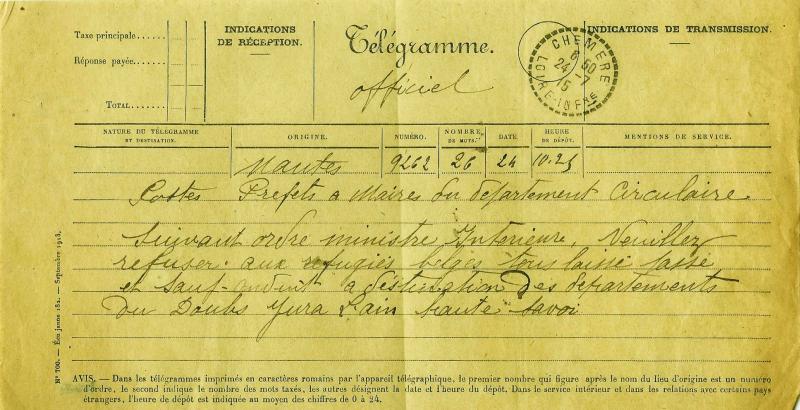 Taxe principale......
Réponse payée......
TOTAL......
INDICATIONS
DE RÉCEPTION.
Télégramme.
officiel
CHEMERE
8 50
24 -7
15
LOIRE-INFRE
INDICATIONS DE TRANSMISSION.
NATURE DU TÉLÉGRAMME
ET DESTINATION.
ORIGINE.
NUMÉRO.
NOMBRE
DE MOTS.
DATE
HEURE
DE DÉPÔT.
MENTIONS DE SERVICE.
Nantes 9262 26 24 10.25
Postes Prefets a Maires du département Circulaire
Suivant ordre ministre Interieure, Veuillez
refuser aux refugiés belges tous laissé passé
et Sauf conduit a destination Des départements
du Doubs Yura Lain haute Savoi
N° 700. — Éts Janne 182. — Septembre 1913.
AVIS. — Dans les télégrammes imprimés en caractères romains par l'appareil télégraphique, le premier nombre qui figure après le nom du lieu d'origine est un numéro
d'ordre, le second indique le nombre des mots taxés, les autres désignent la date et l'heure du dépôt. Dans le service intérieur et dans les relations avec certains pays
étrangers, l'heure de dépôt est indiquée au moyen des chiffres de 0 à 24.